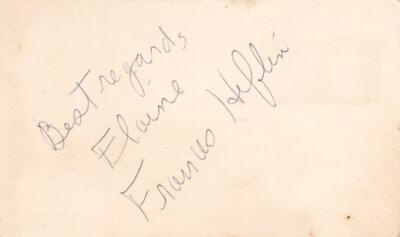 Best regards
Elaine
Frances Heflin